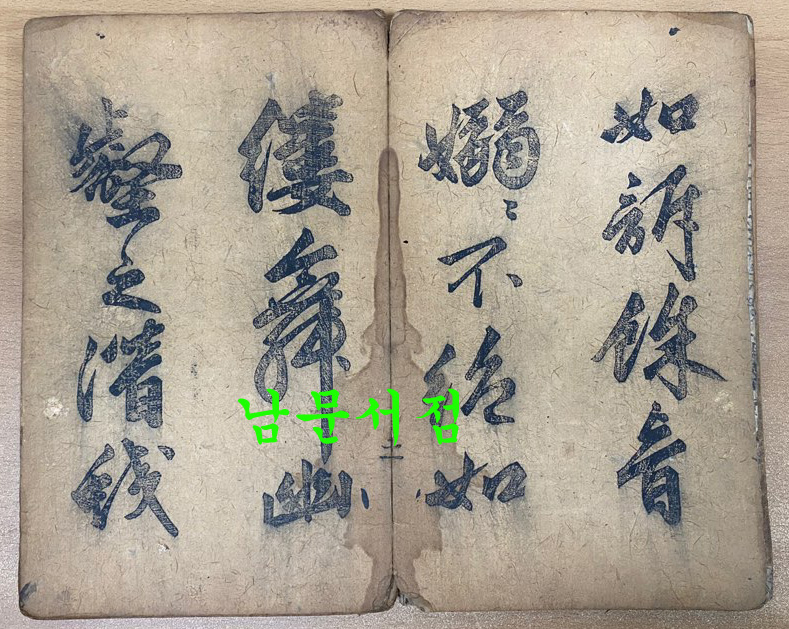 如訴餘音
嫋〻不絶如
縷舞幽
壑之潛
남문서점